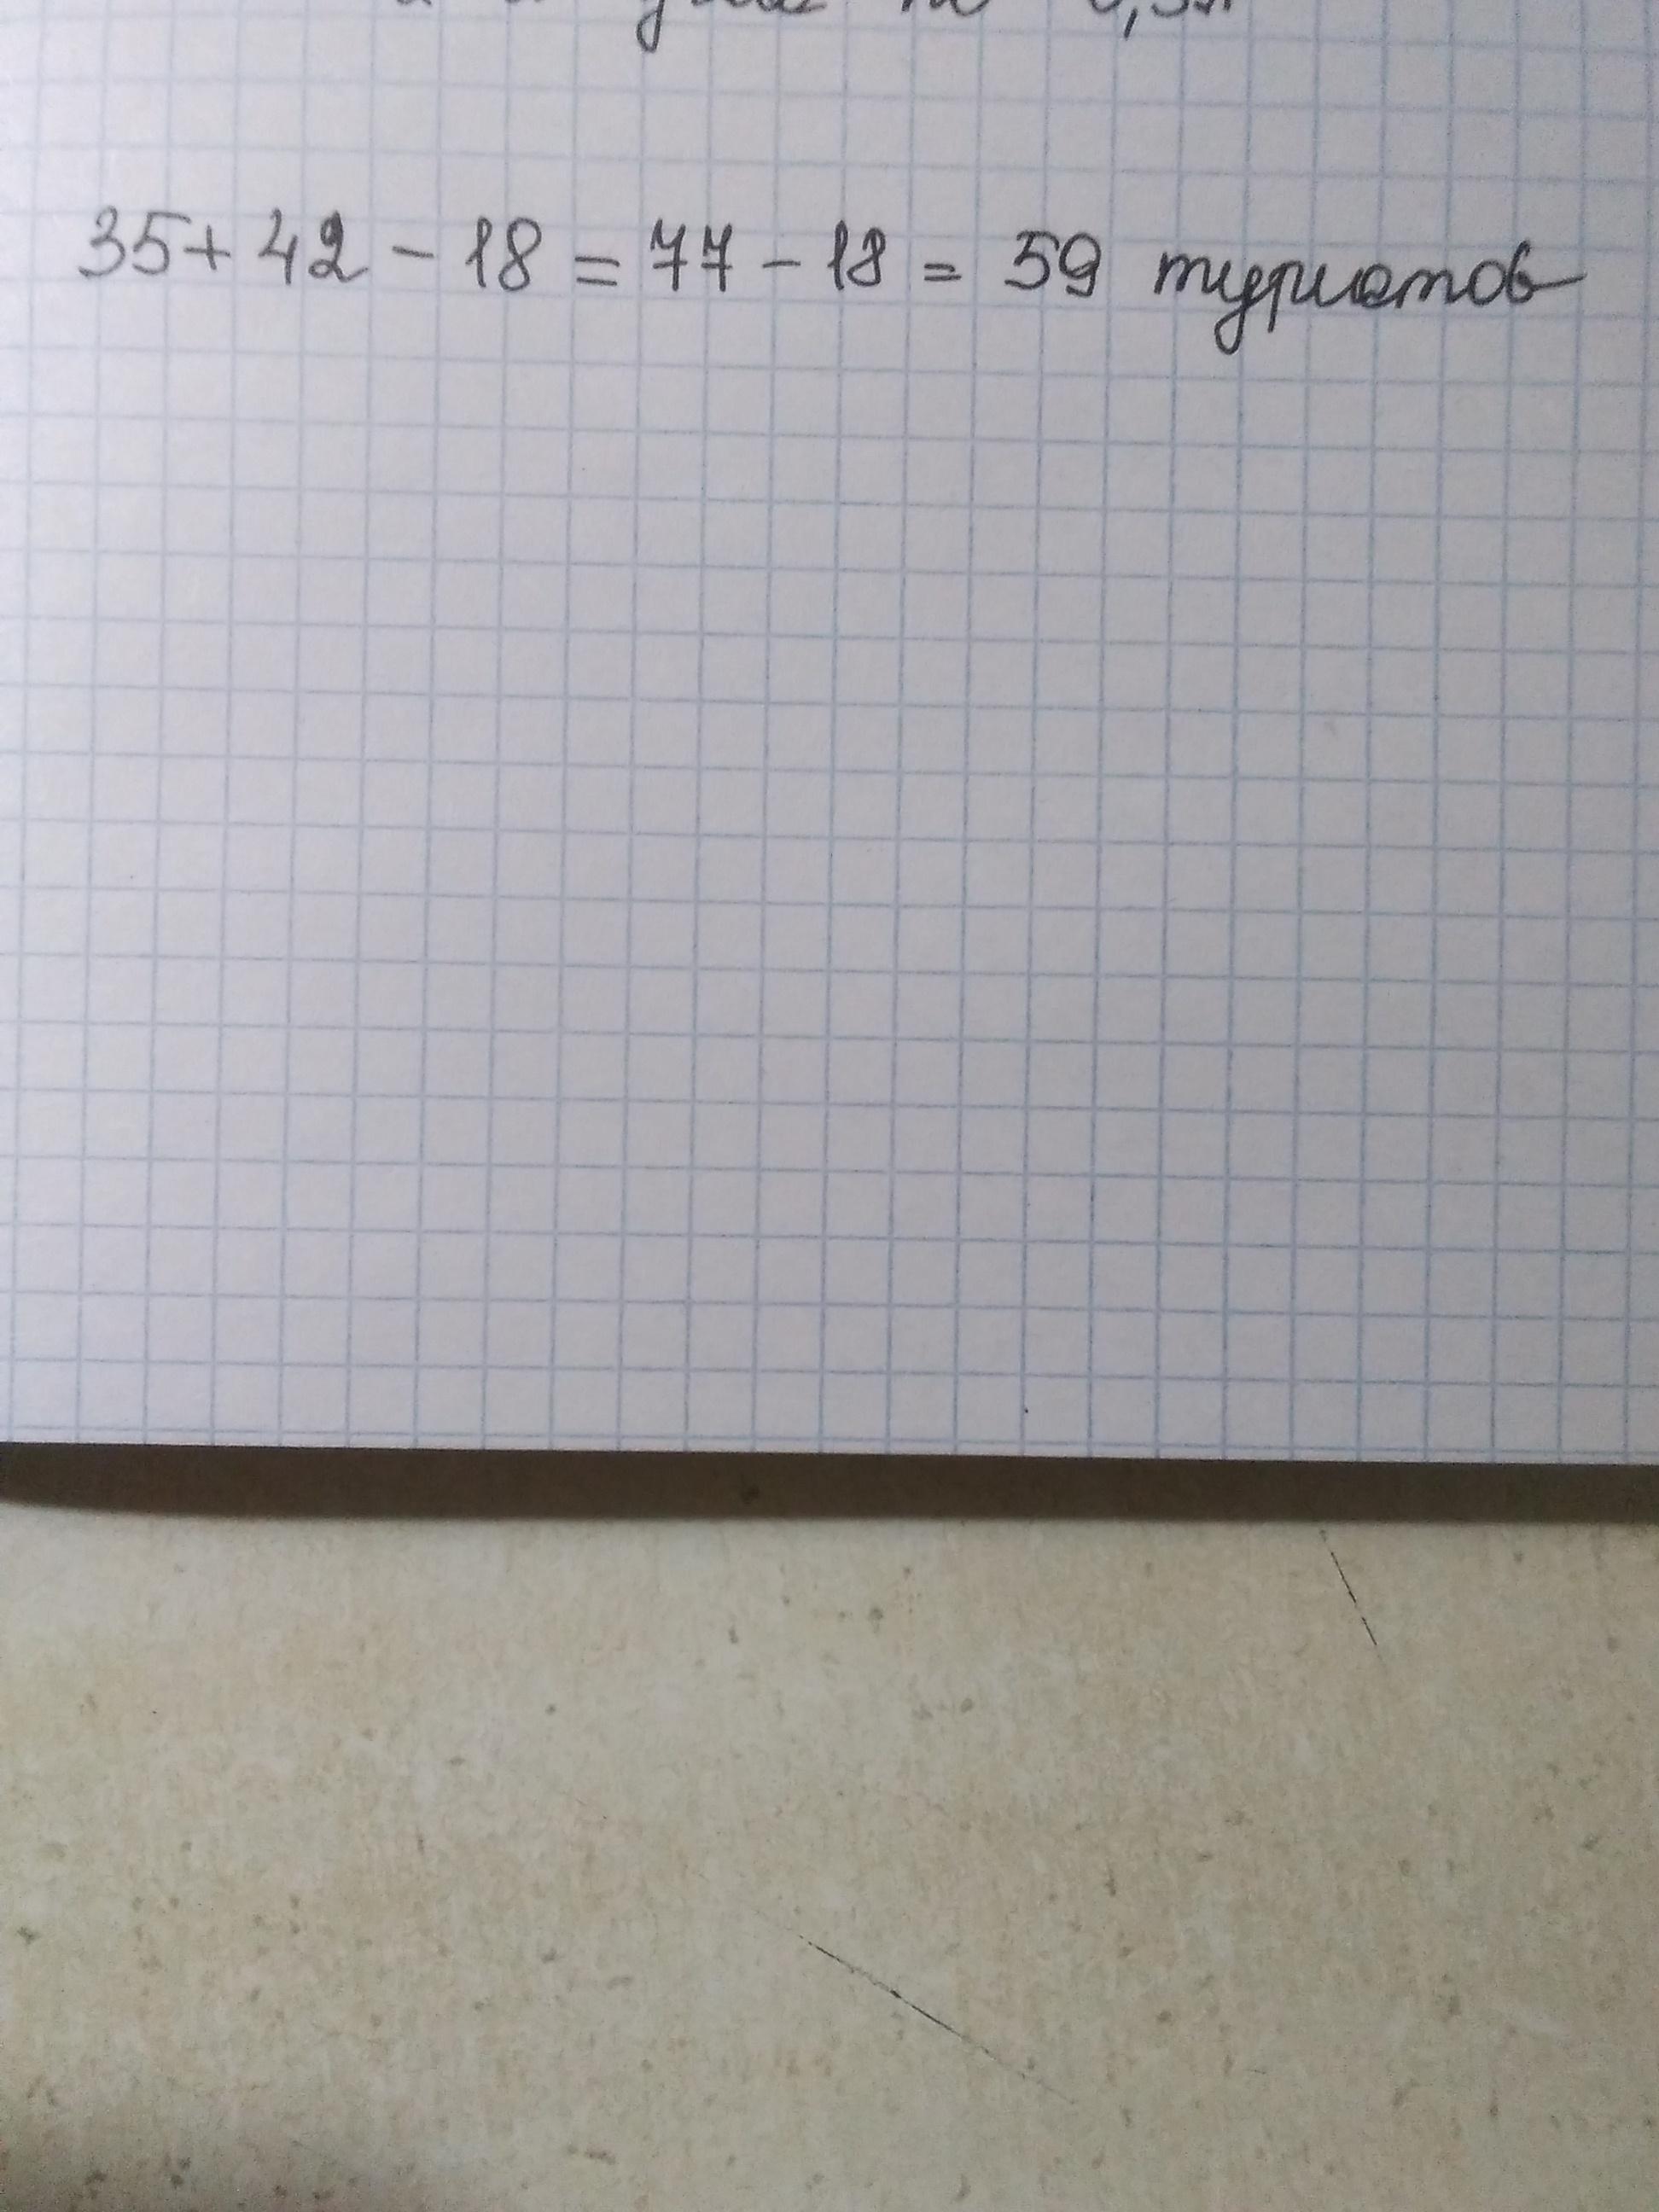 35+42-18=77-18=59 туристов